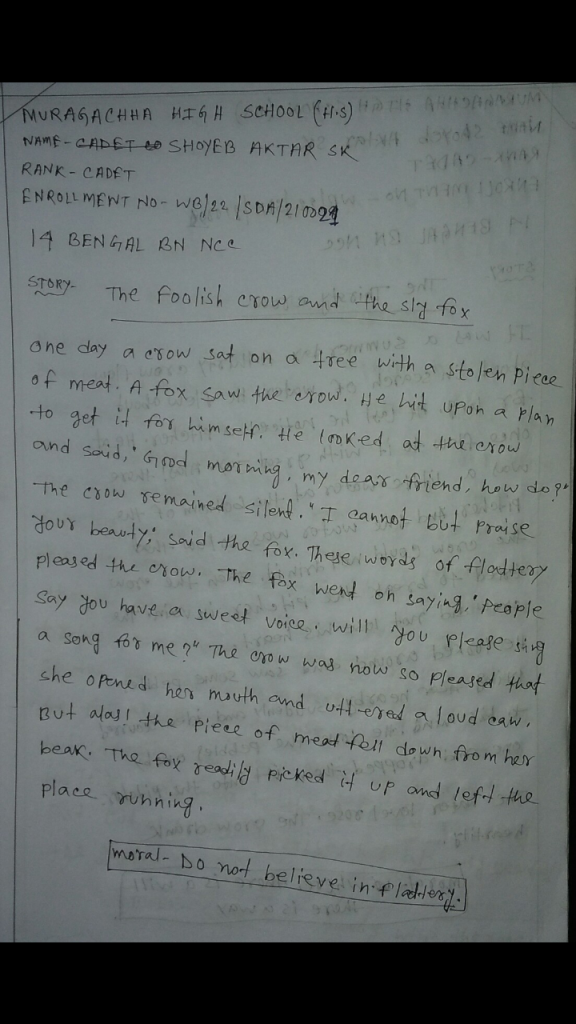 MURAGACHHA HIGH SCHOOL (H.S)
NAME- CADET SHOYEB AKTAR SK
RANK - CADET
ENROLLMENT NO- WB/22/SDA/210021
14 BENGAL BN NCC
STORY- The Foolish crow and the sly fox
One day a crow sat on a tree with a stolen piece
of meat. A fox saw the crow. He hit upon a plan
to get it for himself. He looked at the crow
and said, "Good morning, my dear friend, how do?"
The crow remained silend. "I cannot but praise
your beauty," said the fox. These words of flattery
pleased the crow. The fox went on saying, "People
say you have a sweet voice. will you please sing
a song for me?" The crow was now so pleased that
she opened her mouth and uttered a loud caw.
But alas! the piece of meat fell down from her
beak. The fox readily picked it up and left the
place running.
moral- Do not believe in flattery.